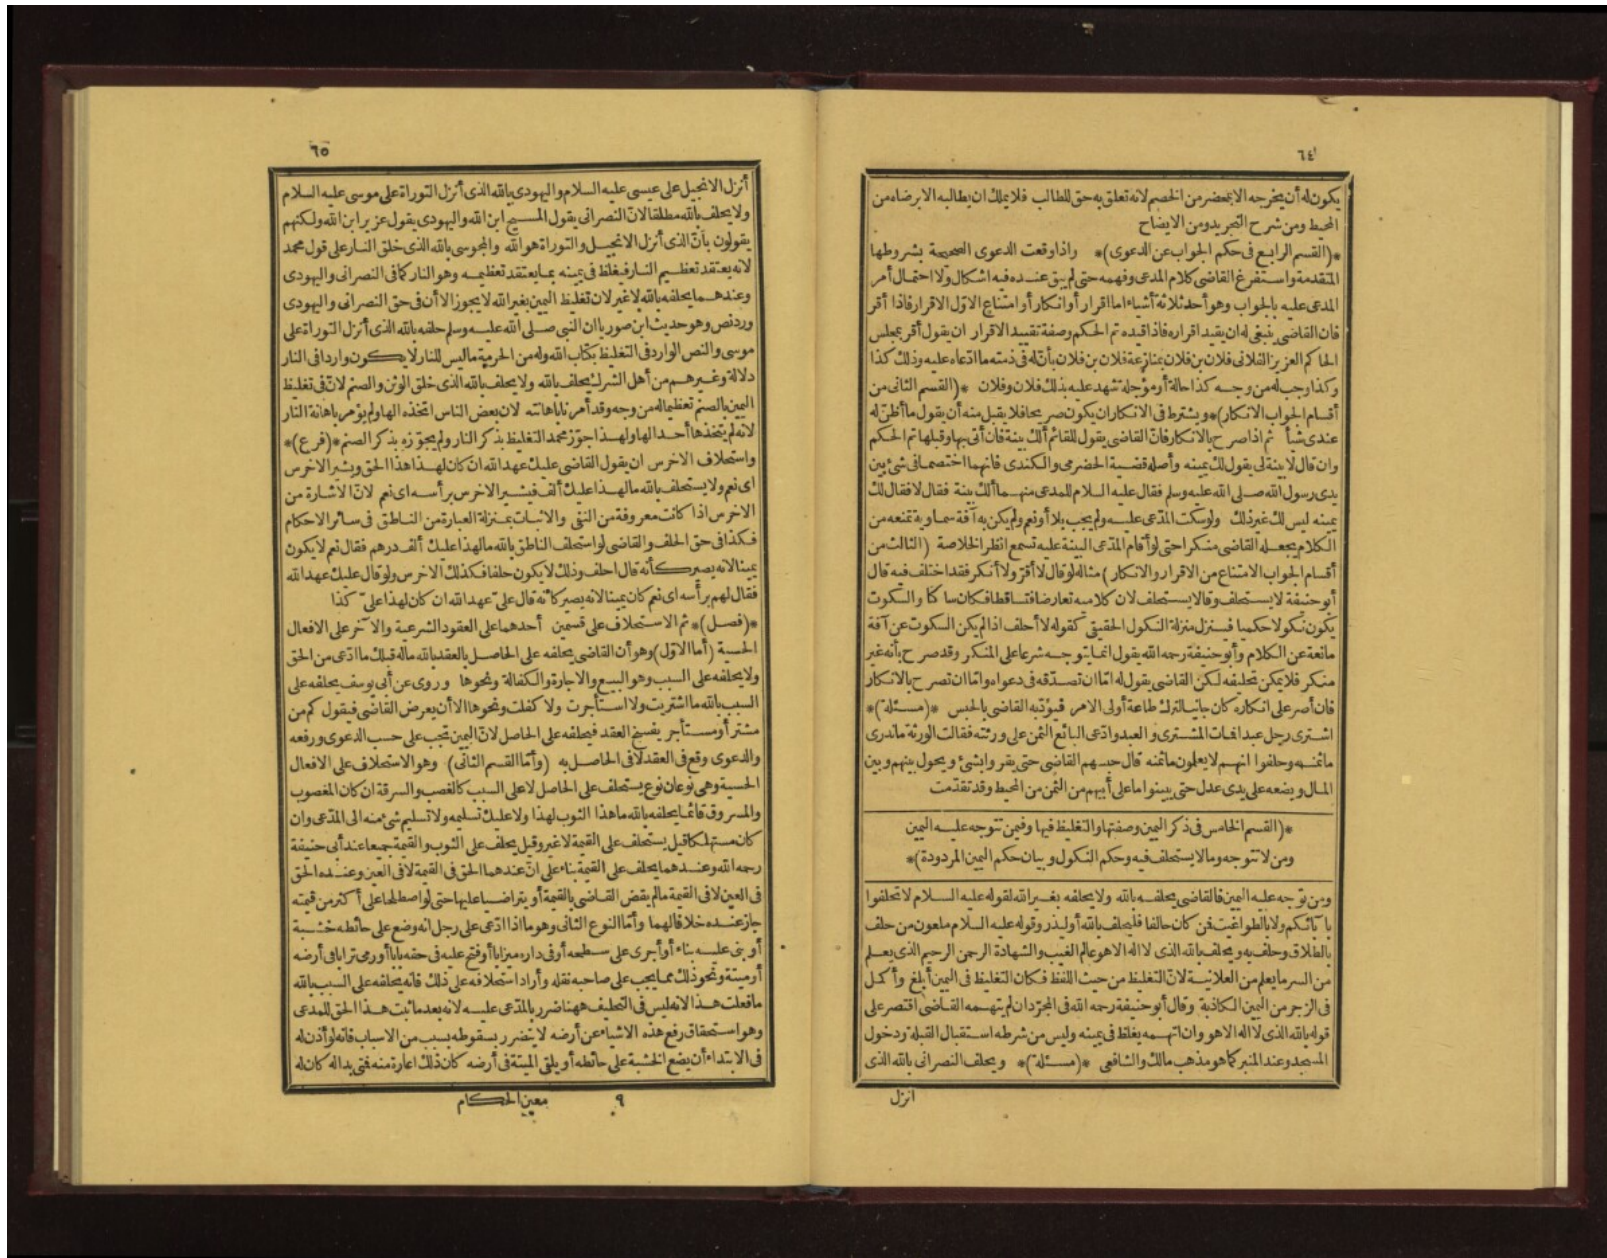 ٦٤
يكون له أن يخرجه الا بمحضر من الخصم لانه تعلق به حق للطالب فلا يملك ان يطالبه الا برضاه من
المحيط ومن شرح التجريد ومن الايضاح
*(القسم الرابع فى حكم الجواب عن الدعوى)* واذا وقعت الدعوى الصحيحة بشروطها
المتقدمة واستفرغ القاضى كلام المدعى وفهمه حتى لم يبق عنده فيه اشكال ولا احتمال أمر
المدعى عليه بالجواب وهو أحد ثلاثة أشياء اما اقرار أو انكار أو امتناع الاول الاقرار فاذا أقر
فان القاضى ينبغى له ان يقيد اقراره فاذا قيده تم الحكم وصفة تقييد الاقرار ان يقول أقر بمجلس
الحاكم العزيز الفلانى فلان بن فلان بمنازعة فلان بن فلان بأن له فى ذمته ما ادعاه عليه وذلك كذا
وكذا وجب له من وجه كذا حالة أو مؤجلة شهد عليه بذلك فلان وفلان *(القسم الثانى من
أقسام الجواب الانكار)* ويشترط فى الانكار ان يكون صريحا فلا يقبل منه أن يقول ما أظن له
عندى شيأ ثم اذا صرح بالانكار فان القاضى يقول للقائم ألك بينة فان أتى بها وقبلها تم الحكم
وان قال لا بينة لى يقول لك يمينه وأصله قضية الحضرمى والكندى فانهما اختصما فى شئ بين
يدى رسول الله صلى الله عليه وسلم فقال عليه السلام للمدعى منهما ألك بينة فقال لا فقال لك
يمينه ليس لك غير ذلك ولو سكت المدعى عليه ولم يجب بلا أو نعم ولم يكن به آفة سماوية تمنعه من
الكلام يجعله القاضى منكرا حتى لو أقام المدعى البينة عليه تسمع انظر الخلاصة (الثالث من
أقسام الجواب الامتناع من الاقرار والانكار) مثاله لو قال لا أقر ولا أنكر فقد اختلف فيه قال
أبو حنيفة لا يستحلف وقالا يستحلف لان كلاميه تعارضا فتساقطا فكان ساكتا والسكوت
يكون نكولا حكميا فينزل منزلة النكول الحقيقى كقوله لا أحلف اذا لم يكن السكوت عن آفة
مانعة عن الكلام وأبو حنيفة رحمه الله يقول انما يتوجه شرعا على المنكر وقد صرح بأنه غير
منكر فلا يمكن تحليفه لكن القاضى يقول له اما ان تصدقه فى دعواه واما ان تصرح بالانكار
فان أصر على انكاره كان جانيا لترك طاعة أولى الامر فيؤدبه القاضى بالحبس *(مسئلة)*
اشترى رجل عبدا فمات المشترى والعبد وادعى البائع الثمن على ورثته فقالت الورثة ما ندرى
ما ثمنه وحلفوا انهم لا يعلمون ما ثمنه قال حبسهم القاضى حتى يقروا بشئ ويحول بينهم وبين
المال ويضعه على يدى عدل حتى يبينوا ما على أبيهم من الثمن من المحيط وقد تقدمت
*(القسم الخامس فى ذكر اليمين وصفتها والتغليظ فيها وفيمن تتوجه عليه اليمين
ومن لا تتوجه وما لا يستحلف فيه وحكم النكول وبيان حكم اليمين المردودة)*
ومن توجه عليه اليمين فالقاضى يحلفه بالله ولا يحلفه بغير الله لقوله عليه السلام لا تحلفوا
بآبائكم ولا بالطواغيت فمن كان حالفا فليحلف بالله أو ليذر وقوله عليه السلام ملعون من حلف
بالطلاق وحلف به ويحلف بالله الذى لا اله الا هو عالم الغيب والشهادة الرحمن الرحيم الذى يعلم
من السر ما يعلم من العلانية لان التغليظ من حيث اللفظ فكان التغليظ فى اليمين أبلغ وأكمل
فى الزجر من اليمين الكاذبة وقال أبو حنيفة رحمه الله فى المجرد ان لم يتهمه القاضى اقتصر على
قوله بالله الذى لا اله الا هو وان اتهمه يغلظ فى يمينه وليس من شرطه استقبال القبلة ودخول
المسجد وعند المنبر كما هو مذهب مالك والشافعى *(مسئلة)* ويحلف النصرانى بالله الذى
انزل
٦٥
أنزل الانجيل على عيسى عليه السلام واليهودى بالله الذى أنزل التوراة على موسى عليه السلام
ولا يحلف بالله مطلقا لان النصرانى يقول المسيح ابن الله واليهودى يقول عزير ابن الله ولكنهم
يقولون بأن الذى أنزل الانجيل والتوراة هو الله والمجوسى بالله الذى خلق النار على قول محمد
لانه يعتقد تعظيم النار فيغلظ فى يمينه بما يعتقد تعظيمه وهو النار كما فى النصرانى واليهودى
وعندهما يحلفه بالله لا غير لان تغليظ اليمين بغير الله لا يجوز الا أن فى حق النصرانى واليهودى
ورد نص وهو حديث ابن صوريا ان النبى صلى الله عليه وسلم حلفه بالله الذى أنزل التوراة على
موسى والنص الوارد فى التغليظ بكتاب الله وله من الحرمة ما ليس للنار لا يكون واردا فى النار
دلالة وغيرهم من أهل الشرك يحلف بالله ولا يحلف بالله الذى خلق الوثن والصنم لان فى تغليظ
اليمين بالصنم تعظيما له من وجه وقد أمرنا باهانته لان بعض الناس اتخذه الها ولم يؤمر باهانة النار
لانه لم يتخذها أحد الها ولهذا جوز محمد التغليظ بذكر النار ولم يجوزه بذكر الصنم *(فرع)*
واستحلاف الاخرس ان يقول القاضى عليك عهد الله ان كان لهذا هذا الحق ويشير الاخرس
اى نعم ولا يستحلف بالله ما لهذا عليك ألف فيشير الاخرس برأسه اى نعم لان الاشارة من
الاخرس اذا كانت معروفة من النفى والاثبات بمنزلة العبارة من الناطق فى سائر الاحكام
فكذا فى حق الحلف والقاضى لو استحلف الناطق بالله ما لهذا عليك ألف درهم فقال نعم لا يكون
يمينا لانه يصير كأنه قال احلف وذلك لا يكون حلفا فكذلك الاخرس ولو قال عليك عهد الله
فقال لهم برأسه اى نعم كان يمينا لانه يصير كأنه قال على عهد الله ان كان لهذا على كذا
*(فصل)* ثم الاستحلاف على قسمين أحدهما على العقود الشرعية والآخر على الافعال
الحسية (أما الاول) وهو أن القاضى يحلفه على الحاصل بالعقد بالله ما له قبلك ما ادعى من الحق
ولا يحلفه على السبب وهو البيع والاجارة والكفالة ونحوها وروى عن أبى يوسف يحلفه على
السبب بالله ما اشتريت ولا استأجرت ولا كفلت ونحوها الا أن يعرض القاضى فيقول كم من
مشتر أو مستأجر يفسخ العقد فيحلفه على الحاصل لان اليمين تجب على حسب الدعوى ورفعه
والدعوى وقع فى العقد لا فى الحاصل به (وأما القسم الثانى) وهو الاستحلاف على الافعال
الحسية وهى نوعان نوع يستحلف على الحاصل لا على السبب كالغصب والسرقة ان كان المغصوب
والمسروق قائما يحلفه بالله ما هذا الثوب لهذا ولا عليك تسليمه ولا تسليم شئ منه الى المدعى وان
كان مستهلكا قيل يستحلف على القيمة لا غير وقيل يحلف على الثوب والقيمة جميعا عند أبى حنيفة
رحمه الله وعندهما يحلف على القيمة بناء على ان عندهما الحق فى القيمة لا فى العين وعنده الحق
فى العين لا فى القيمة ما لم يقض القاضى بالقيمة أو يتراضيا عليها حتى لو اصطلحا على أكثر من قيمته
جاز عنده خلافا لهما وأما النوع الثانى وهو ما اذا ادعى على رجل انه وضع على حائطه خشبة
أو بنى عليه بناء أو أجرى على سطحه أو فى داره ميزابا أو فتح عليه فى حقه بابا أو رمى ترابا فى أرضه
أو ميتة ونحو ذلك مما يجب على صاحبه نقله وأراد استحلافه على ذلك فانه يحلفه على السبب بالله
ما فعلت هذا لانه ليس فى التحليف ههنا ضرر بالمدعى عليه لانه بعد ما ثبت هذا الحق للمدعى
وهو استحقاق رفع هذه الاشياء عن أرضه لا يتضرر بسقوطه بسبب من الاسباب فانه لو أذن له
فى الابتداء أن يضع الخشبة على حائطه أو يلقى الميتة فى أرضه كان ذلك اعارة منه فمتى بدا له كان له
٩ معين الحكام